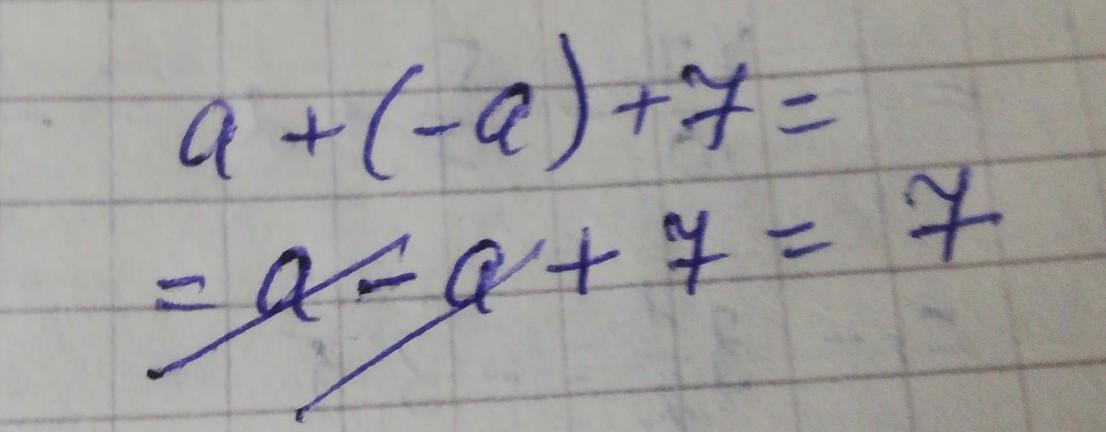 a + (-a) + 7 =
= a - a + 7 = 7